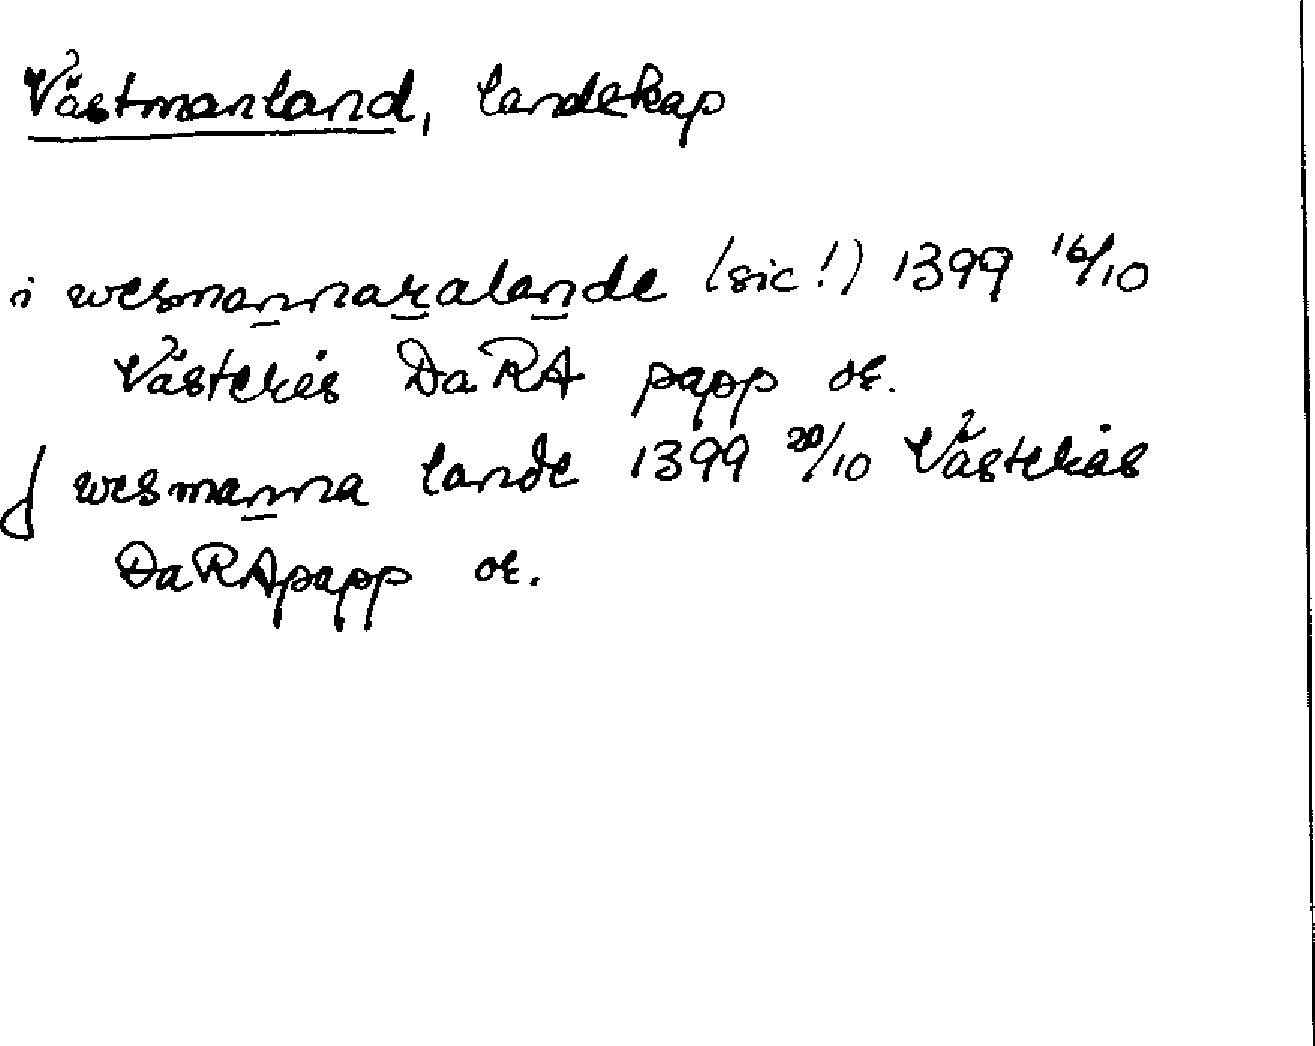 Västmanland, landskap
i wesmannaralande (sic!) 1399 16/10
Västerås DaRA papp or.
J wesmanna lande 1399 20/10 Västerås
DaRA papp or.